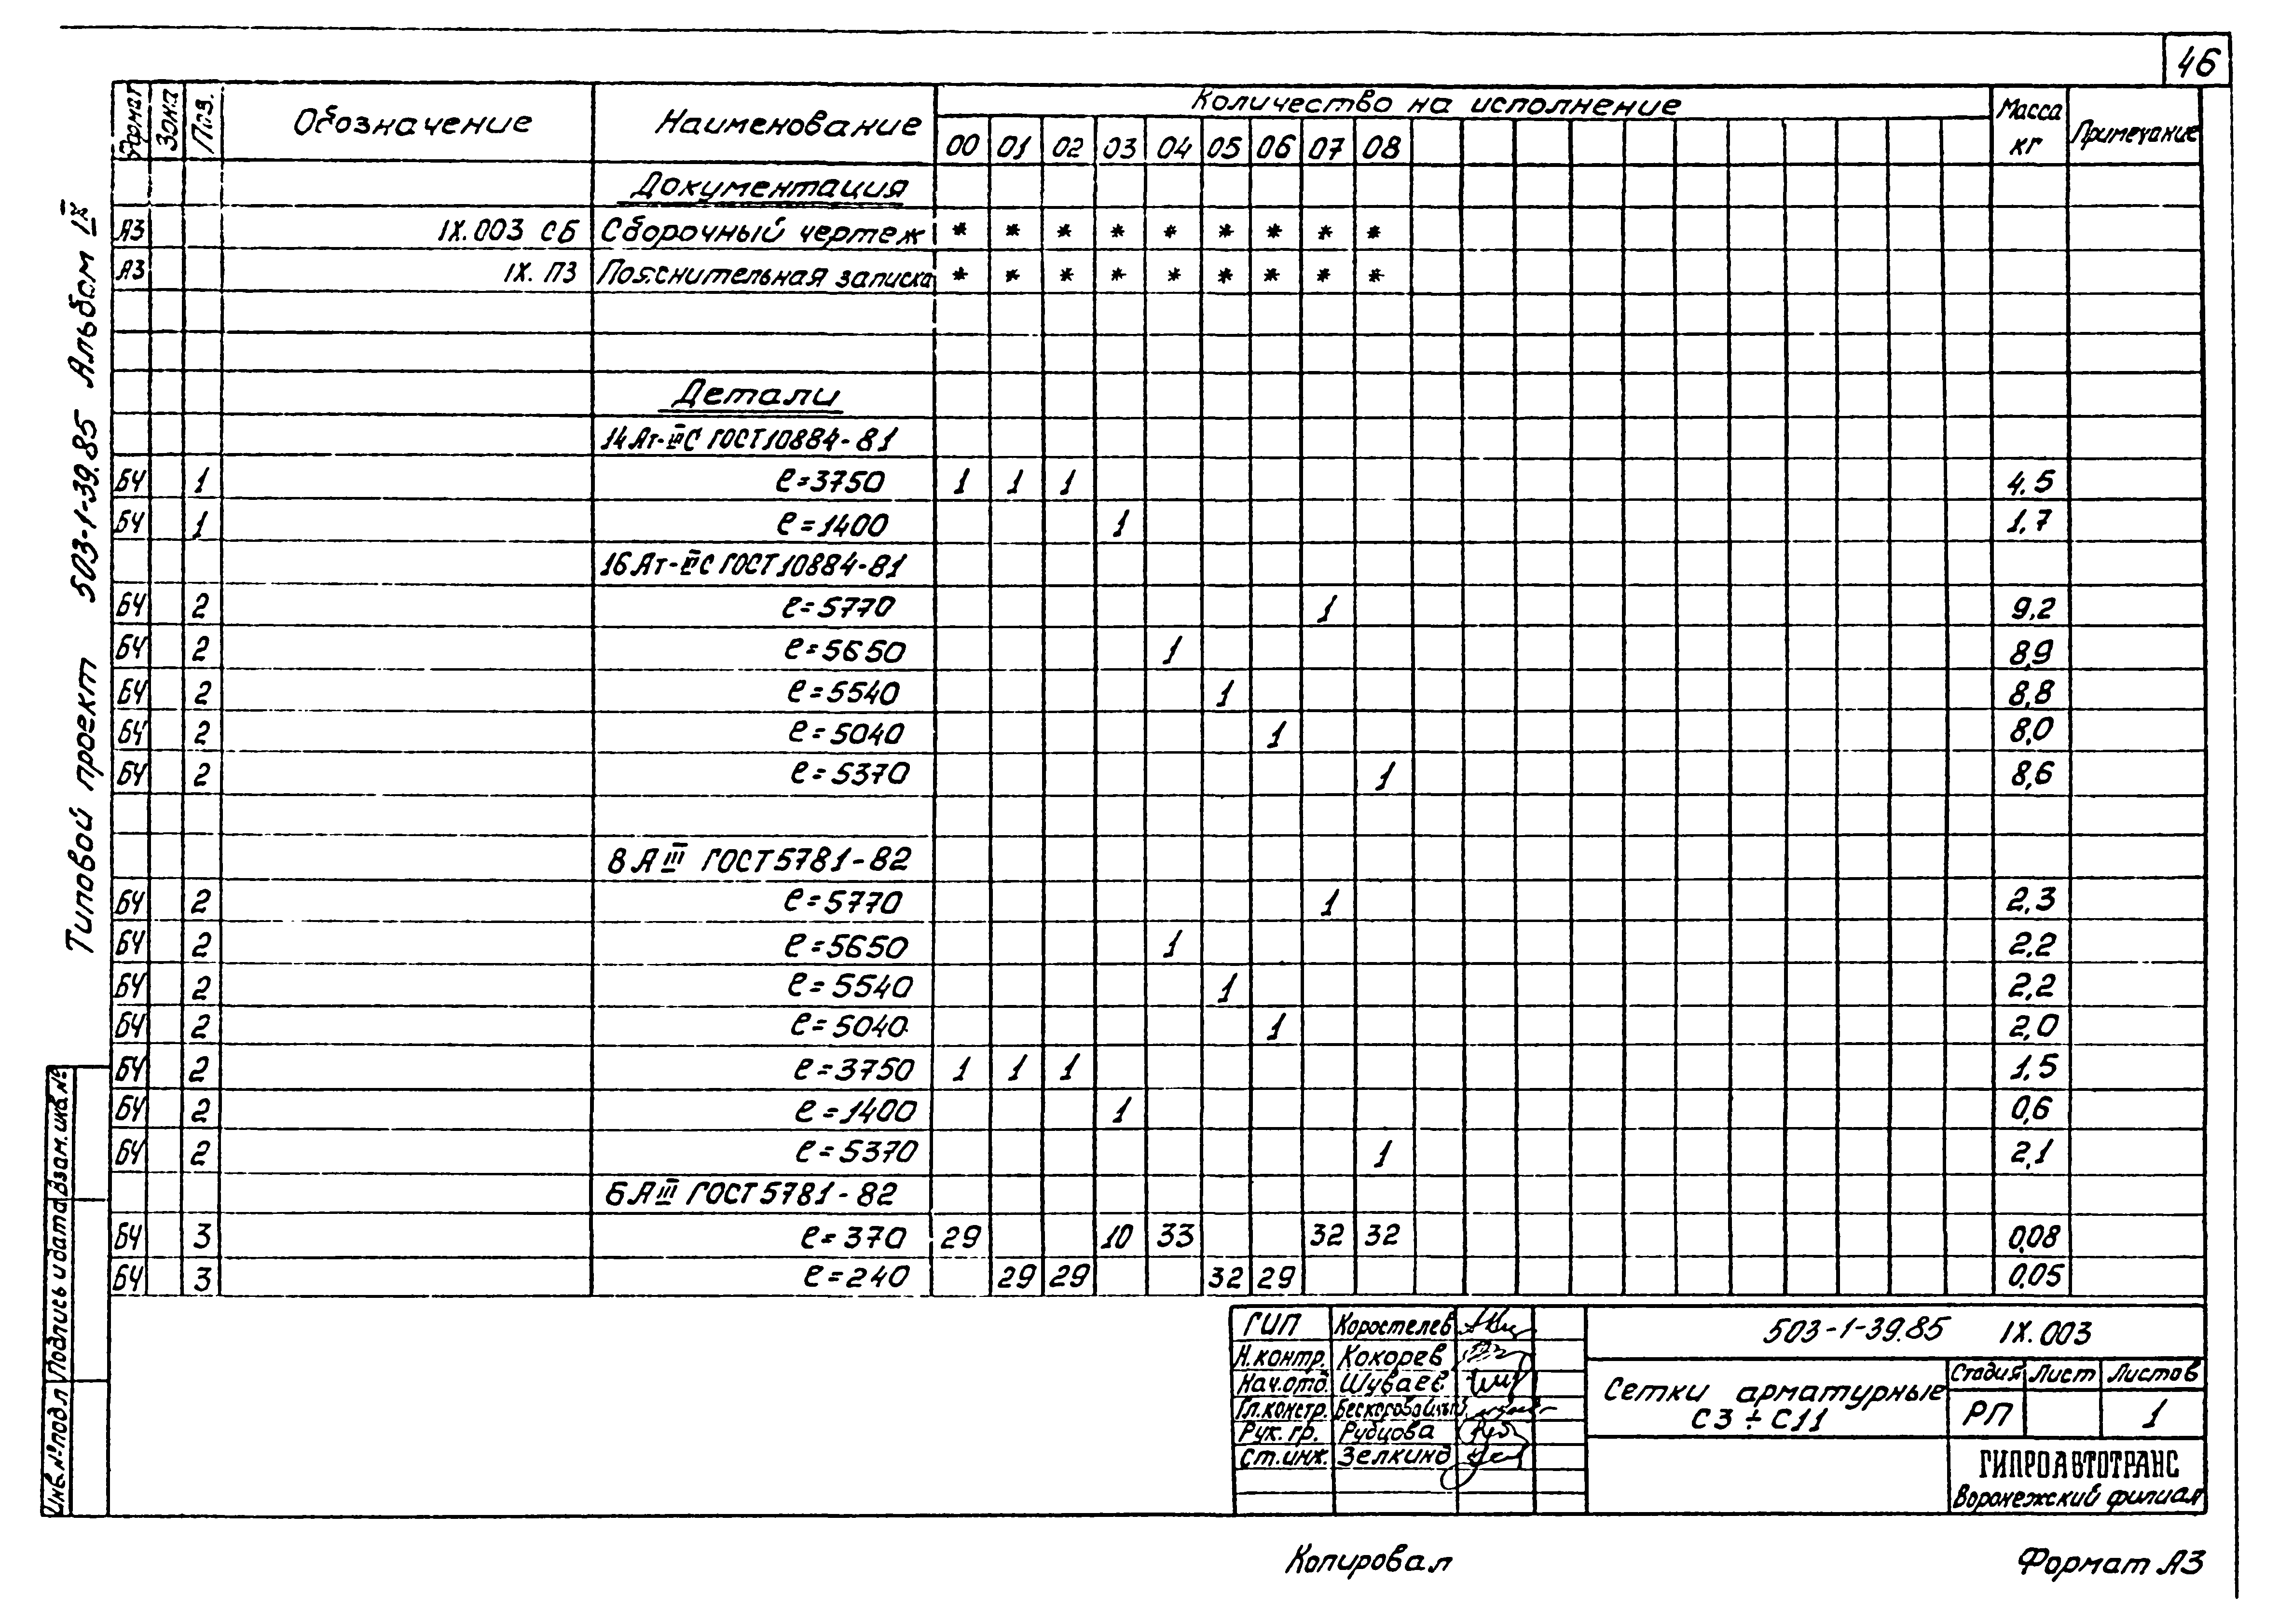 46
Типовой проект 503-1-39.85 Альбом IX
Формат Зона Поз. Обозначение Наименование Количество на исполнение Масса кг Примечание
00 01 02 03 04 05 06 07 08
Документация
А3 IX.003 СБ Сборочный чертеж * * * * * * * * *
А3 IX. ПЗ Пояснительная записка * * * * * * * * *
Детали
14 Ат-IIIС ГОСТ 10884-81
БЧ 1 ℓ=3750 1 1 1 4.5
БЧ 1 ℓ=1400 1 1,7
16 Ат-IIIС ГОСТ 10884-81
БЧ 2 ℓ=5770 1 9,2
БЧ 2 ℓ=5650 1 8,9
БЧ 2 ℓ=5540 1 8,8
БЧ 2 ℓ=5040 1 8,0
БЧ 2 ℓ=5370 1 8,6
8 А III ГОСТ 5781-82
БЧ 2 ℓ=5770 1 2,3
БЧ 2 ℓ=5650 1 2,2
БЧ 2 ℓ=5540 1 2,2
БЧ 2 ℓ=5040 1 2,0
БЧ 2 ℓ=3750 1 1 1 1,5
БЧ 2 ℓ=1400 1 0,6
БЧ 2 ℓ=5370 1 2,1
6 А III ГОСТ 5781-82
БЧ 3 ℓ=370 29 10 33 32 32 0,08
БЧ 3 ℓ=240 29 29 32 29 0,05
Инв.№подл Подпись и дата Взам.инв.№
ГИП Коростелев
Н.контр. Кокорев
Нач.отд. Шуваев
Гл.констр. Бескоровайный
Рук.гр. Рубцова
Ст.инж. Зелкинд
503-1-39.85 IX.003
Сетки арматурные
С3÷С11
Стадия Лист Листов
РП 1
ГИПРОАВТОТРАНС
Воронежский филиал
Копировал
Формат А3